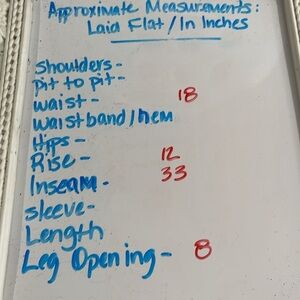 Approximate Measurements:
Laid Flat / In Inches
Shoulders -
pit to pit -
waist - 18
waistband / hem
Hips -
Rise - 12
Inseam - 33
sleeve -
Length
Leg Opening - 8